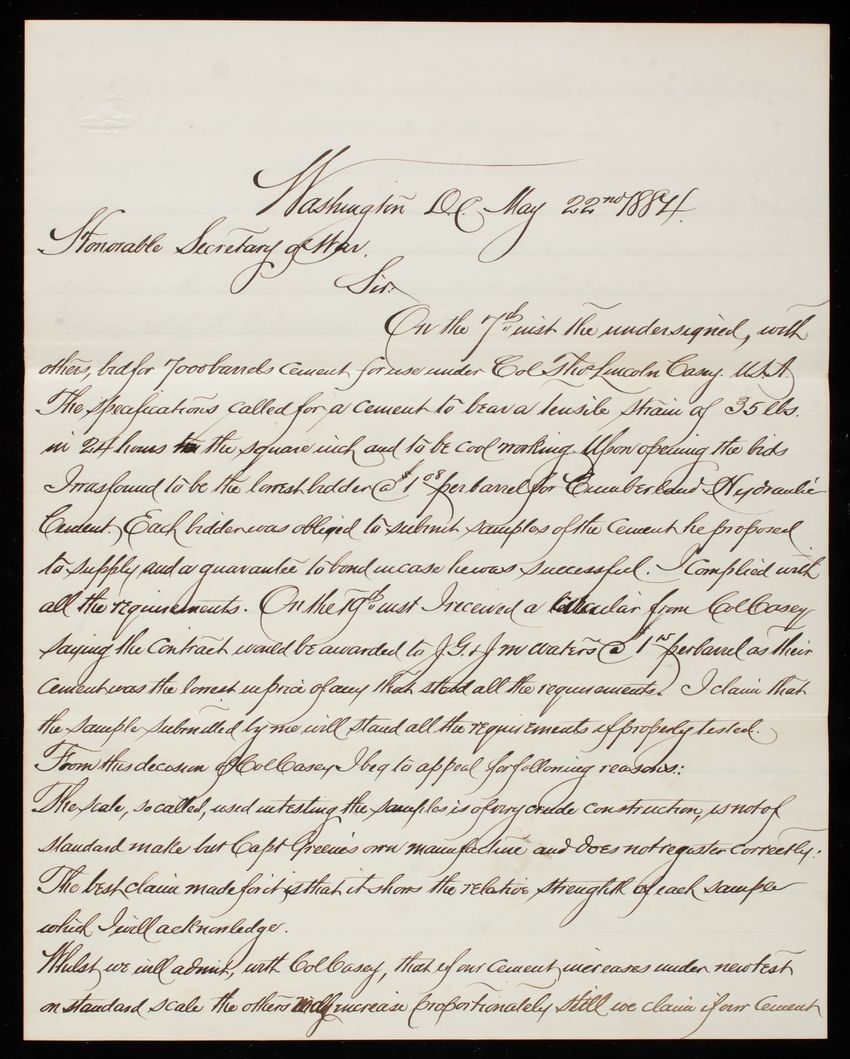 Washington D.C. May 22nd 1884.
Honorable Secretary of War.
Sir:
On the 7th inst the undersigned, with
others, bid for 7000 barrels cement for use under Col Thos Lincoln Casey. U.S.A
The specifications called for a cement to bear a tensile strain of 35 lbs.
in 24 hours to the square inch and to be cool working. Upon opening the bids
I was found to be the lowest bidder @ $1 08 per barrel for Cumberland Hydraulic
Cement. Each bidder was obliged to submit samples of the cement he proposed
to supply and a guarantee to bond in case he was successful. I complied with
all the requirements. On the 19th inst I received a circular from Col Casey
saying the contract would be awarded to J.G. & J M Waters @ $1 per barrel as their
cement was the lowest in price of any that stood all the requirements. I claim that
the sample submitted by me will stand all the requirements if properly tested.
From this decision of Col Casey I beg to appeal for following reasons:
The scale, so called, used in testing the samples is of very crude construction, is not of
standard make but Capt Greene's own manufacture and does not register correctly.
The best claim made for it is that it shows the relative strenghth of each sample
which I will acknowledge.
Whilst we will admit, with Col Casey, that if our cement increases under new test
on standard scale the others will increase proportionately still we claim if our cement